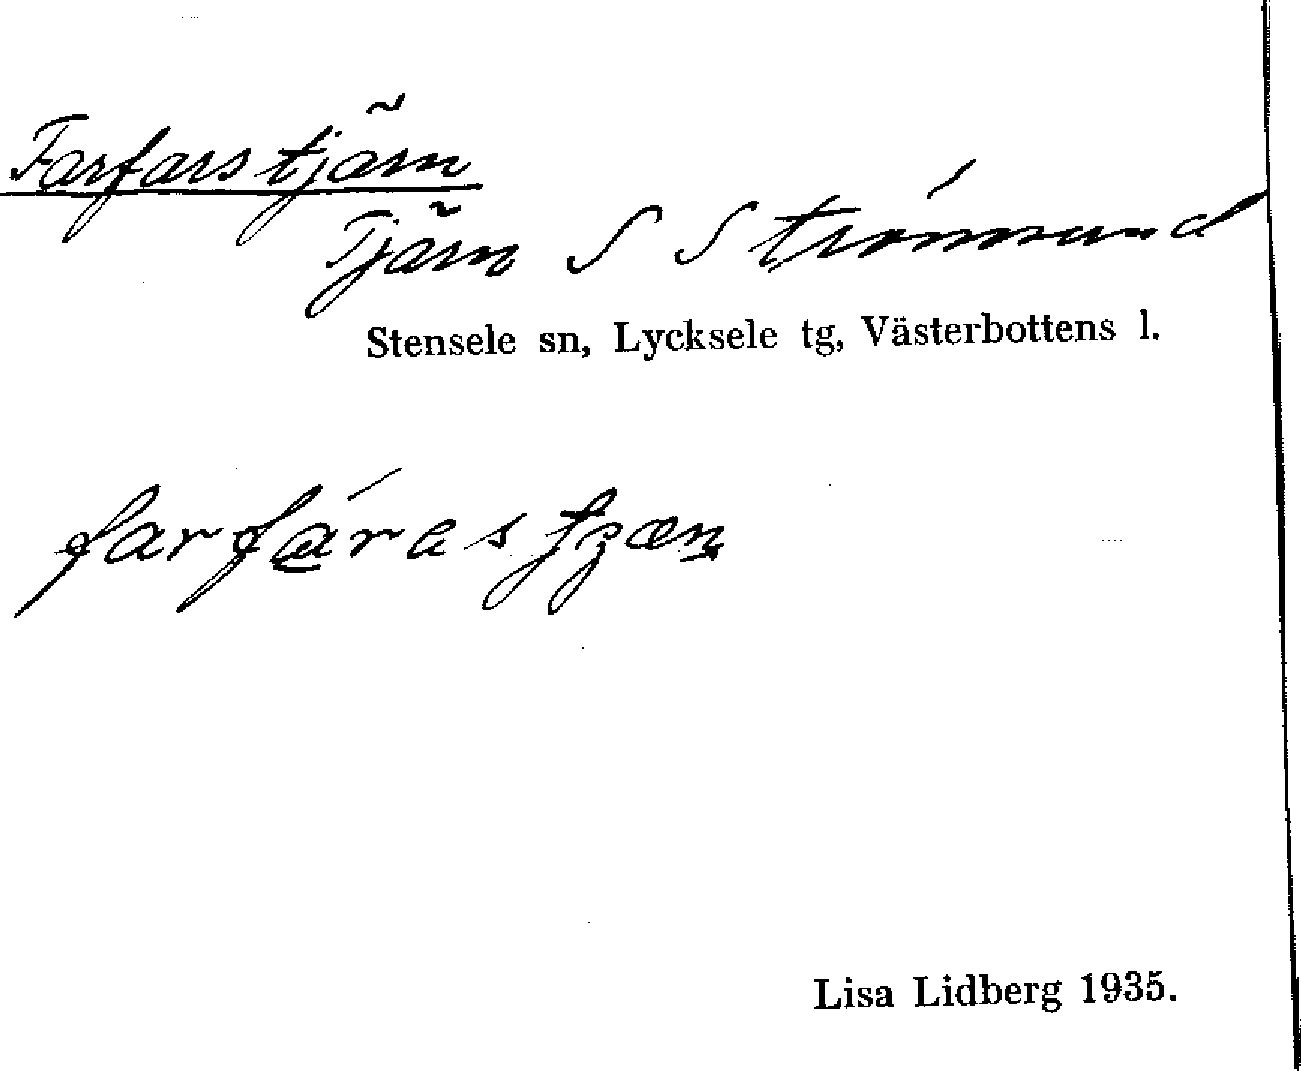 Farfarstjärn
Tjärn S Strömsund
Stensele sn, Lycksele tg, Västerbottens l.
farfárastjæn
Lisa Lidberg 1935.